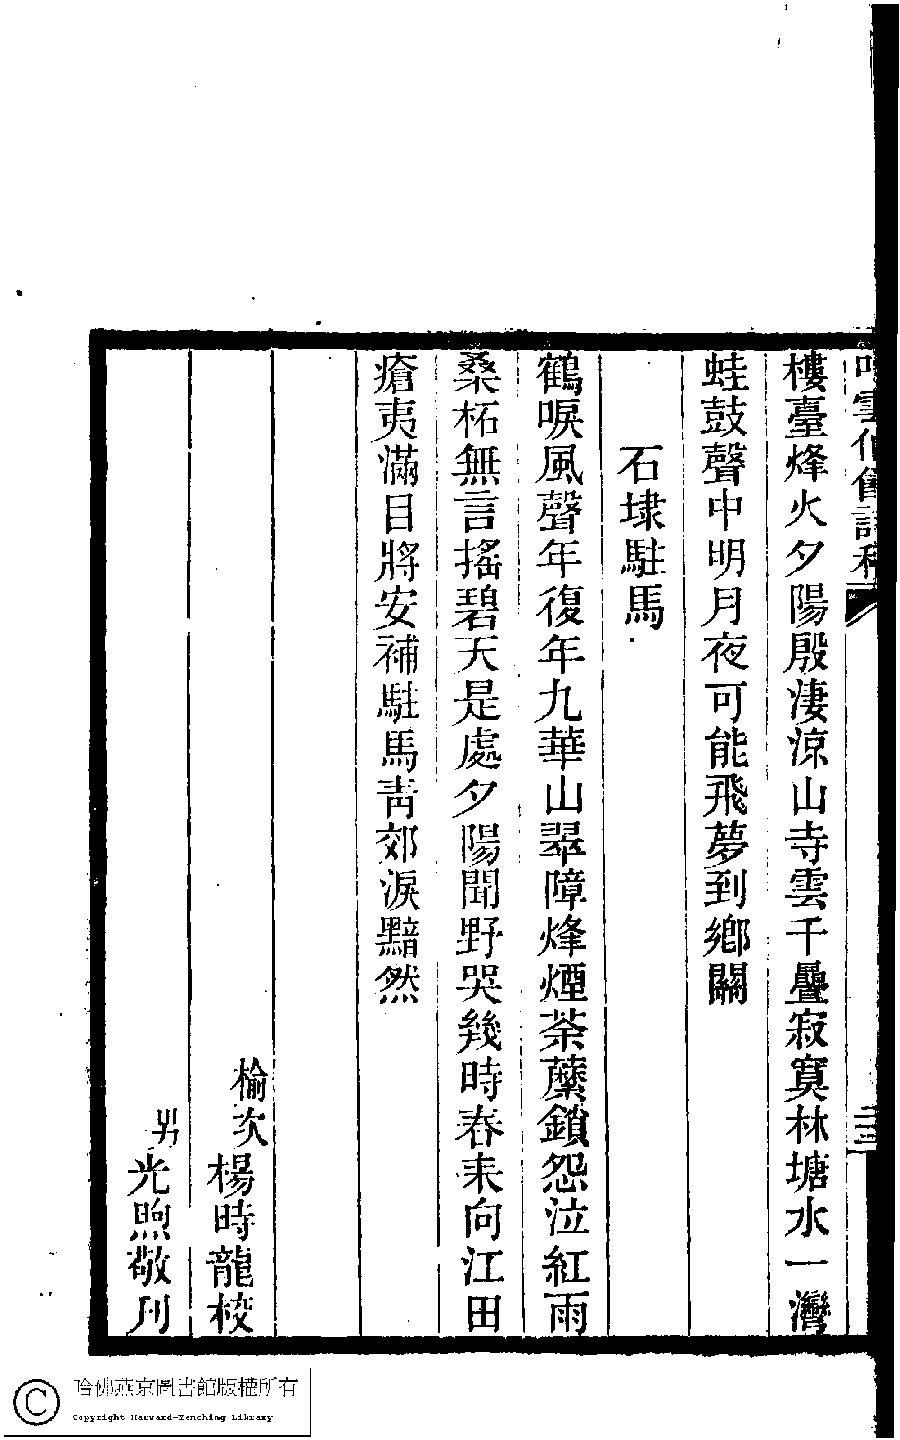 樓臺烽火夕陽殷淒涼山寺雲千疊寂寞林塘水一灣
蛙鼓聲中明月夜可能飛夢到鄉關
石埭駐馬
鶴唳風聲年復年九華山翠障烽煙荼蘼鎖怨泣紅雨
桑柘無言搖碧天是處夕陽聞野哭幾時春耒向江田
瘡夷滿目將安補駐馬靑郊淚黯然
榆次楊時龍校
男光煦敬刋
哈佛燕京圖書館版權所有
Copyright Harvard-Yenching Library